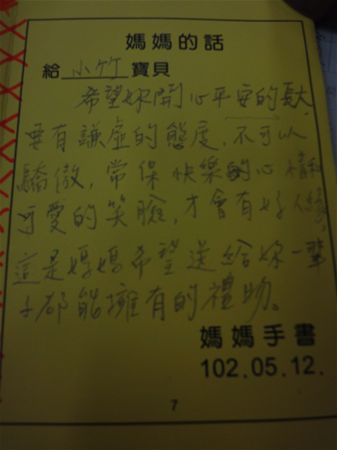 媽媽的話
給 小竹 寶貝
希望妳開心平安的長大
要有謙虛的態度，不可以
驕傲，常保快樂的心情和
可愛的笑臉，才會有好人緣，
這是媽媽希望送給妳一輩
子都能擁有的禮物。
媽媽手書
102.05.12.
7